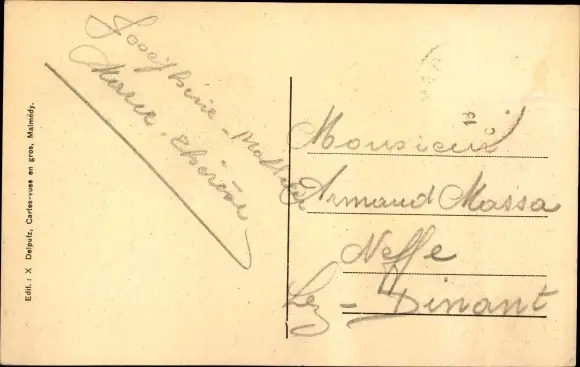 Joséphine - Mathieu
Marie-Thérèse
Monsieur
Armand Massa
Neffe
Lez - Dinant
Edit.: X Delputz, Cartes-vues en gros, Malmédy.